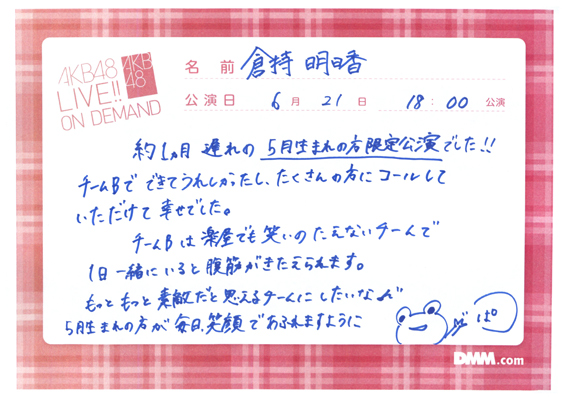 AKB48
LIVE!!
ON DEMAND
AKB
48
名前 倉持 明日香
公演日 6月 21日 18:00 公演
約1ヵ月 遅れの 5月生まれの方限定公演でした!!
チームBで できてうれしかったし、たくさんの方にコールして
いただけて 幸せでした。
チームB は 楽屋でも 笑いの たえないチームで
1日 一緒に いると 腹筋が きたえられます。
もっと もっと 素敵だと 思えるチームに したいなぁ
5月生まれの方が 毎日、笑顔で あふれますように
ぱ
DMM.com